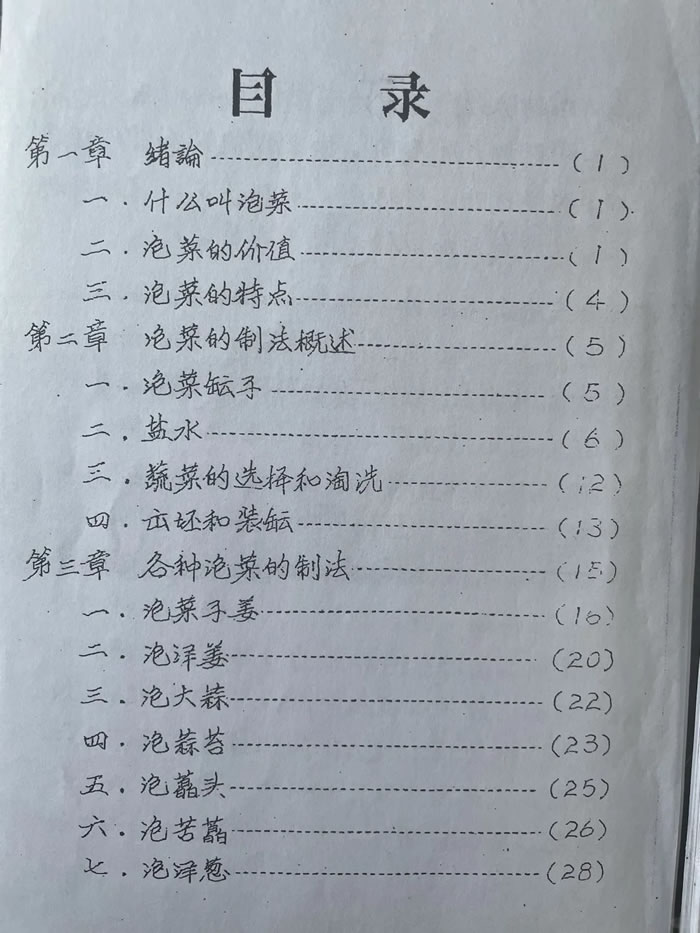 目 录
第一章 绪論 (1)
一. 什么叫泡菜 (1)
二. 泡菜的价值 (1)
三. 泡菜的特点 (4)
第二章 泡菜的制法概述 (5)
一. 泡菜缸子 (5)
二. 盐水 (6)
三. 蔬菜的选择和淘洗 (12)
四. 出坯和装缸 (13)
第三章 各种泡菜的制法 (15)
一. 泡菜子姜 (16)
二. 泡洋姜 (20)
三. 泡大蒜 (22)
四. 泡蒜苔 (23)
五. 泡藠头 (25)
六. 泡苦藠 (26)
七. 泡洋葱 (28)